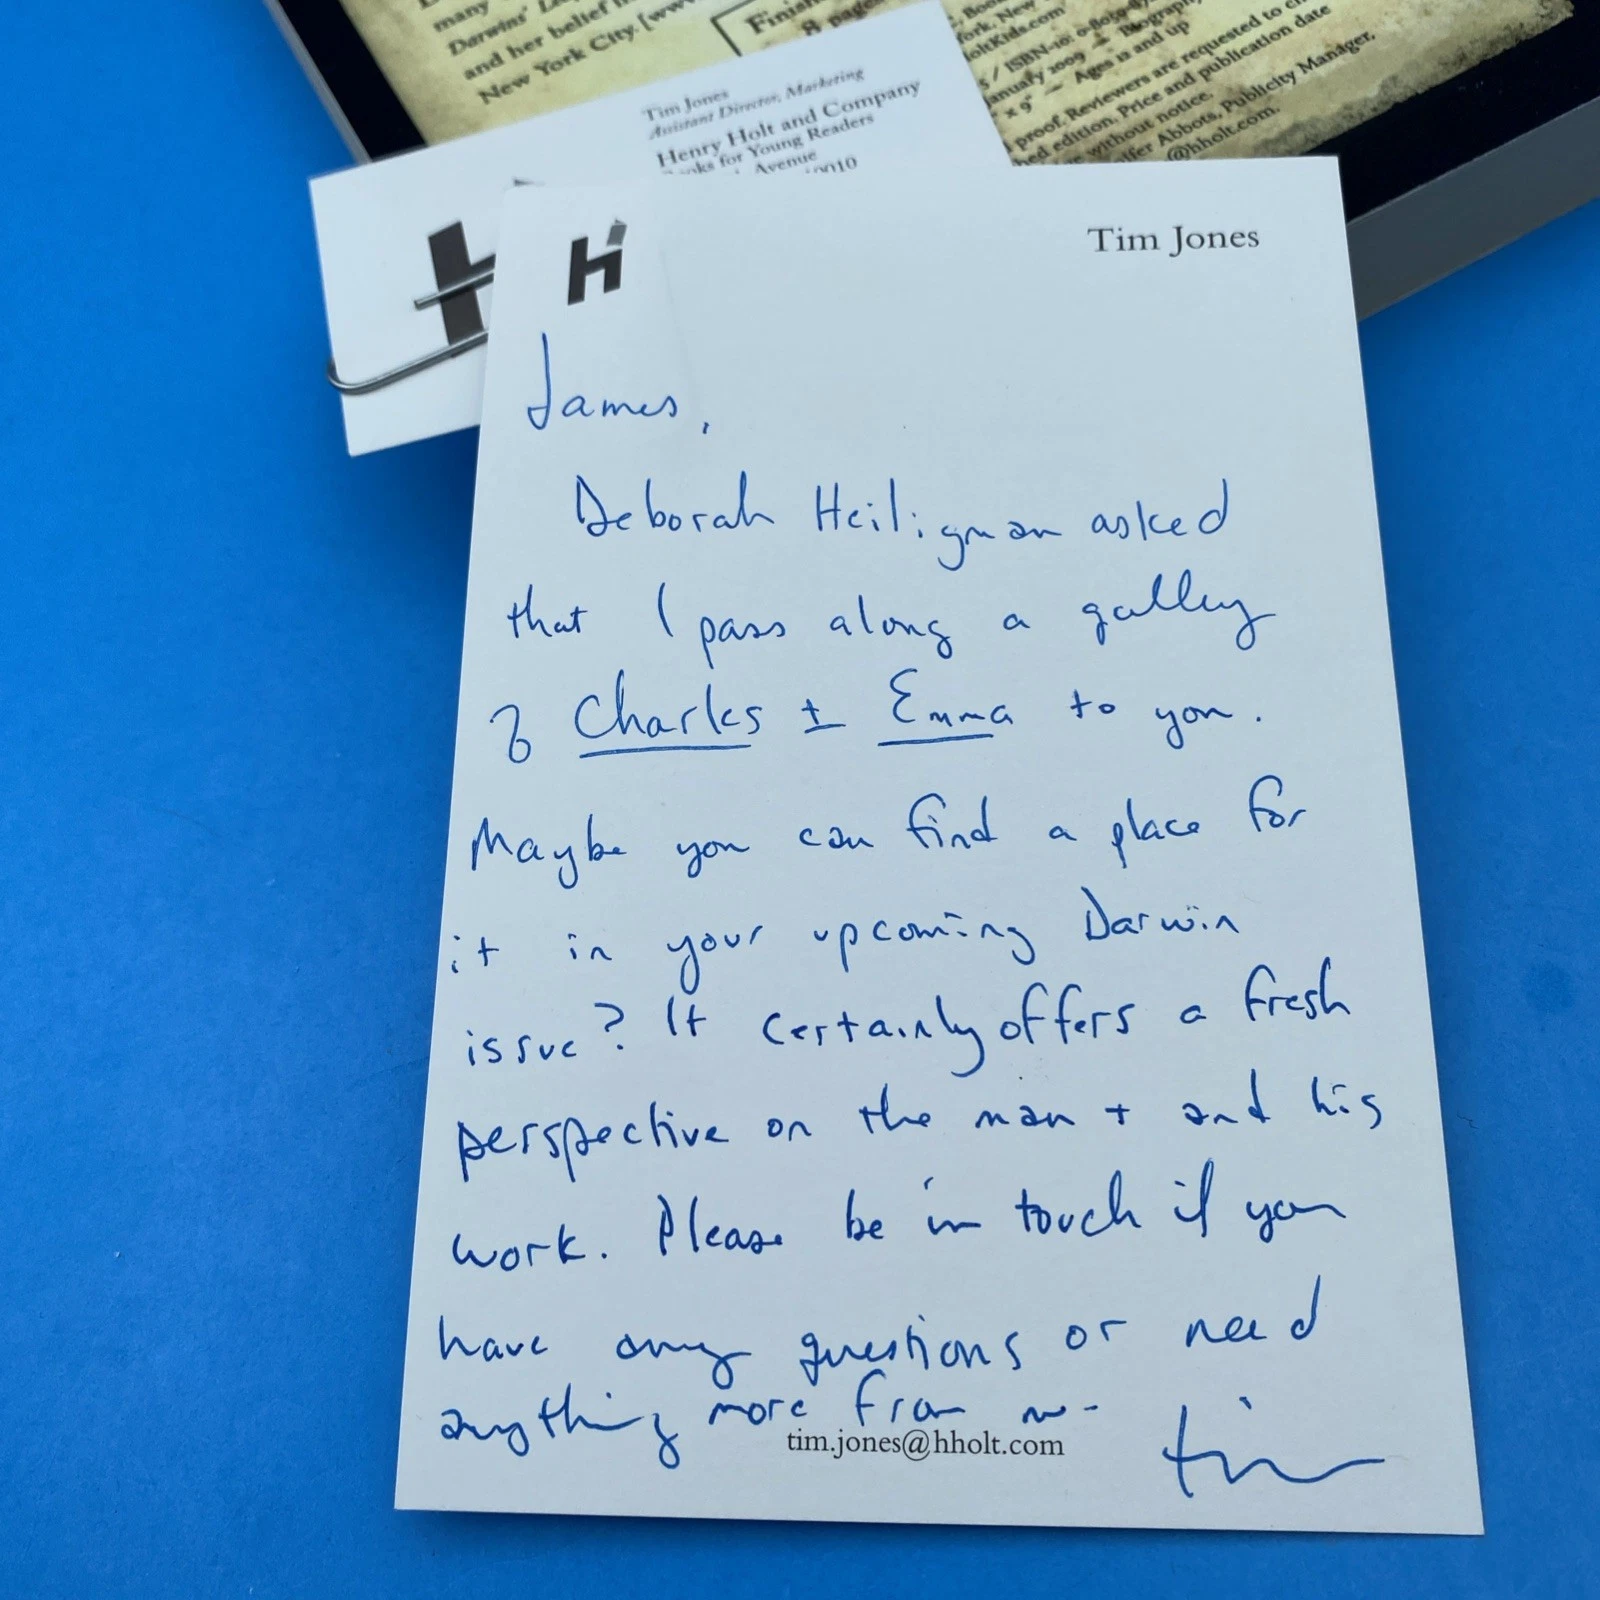 many
Darwins'
and her belief
New York City. [www
Finish
8 pages
New
oltKids.com
/ ISBN-10:
anuary 2009 — Biography
x 9" — Ages 12 and up
proof. Reviewers are requested to
ed edition. Price and publication date
without notice.
ifer Abbots, Publicity Manager,
@hholt.com.
Tim Jones
Assistant Director, Marketing
Henry Holt and Company
Books for Young Readers
Avenue
10010
H
Tim Jones
James,
Deborah Heiligman asked
that I pass along a galley
of Charles + Emma to you.
Maybe you can find a place for
it in your upcoming Darwin
issue? It certainly offers a fresh
perspective on the man + and his
work. Please be in touch if you
have any questions or need
anything more from me-
tim.jones@hholt.com
Tim